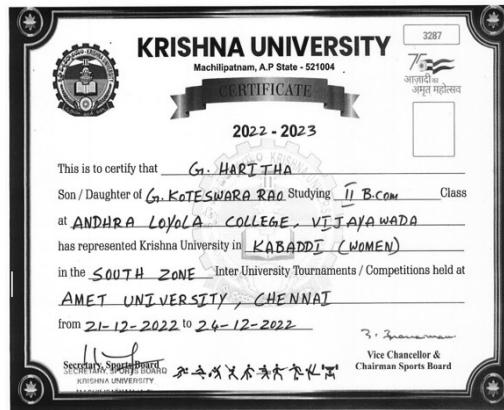 3287
KRISHNA UNIVERSITY
Machilipatnam, A.P State - 521004
75
आज़ादी का
अमृत महोत्सव
CERTIFICATE
2022 - 2023
This is to certify that G. HARITHA
Son / Daughter of G. KOTESWARA RAO Studying II B.com Class
at ANDHRA LOYOLA COLLEGE, VIJAYAWADA
has represented Krishna University in KABADDI (WOMEN)
in the SOUTH ZONE Inter University Tournaments / Competitions held at
AMET UNIVERSITY, CHENNAI
from 21-12-2022 to 24-12-2022
Secretary, Sports Board
SECRETARY, SPORTS BOARD
KRISHNA UNIVERSITY
Vice Chancellor &
Chairman Sports Board